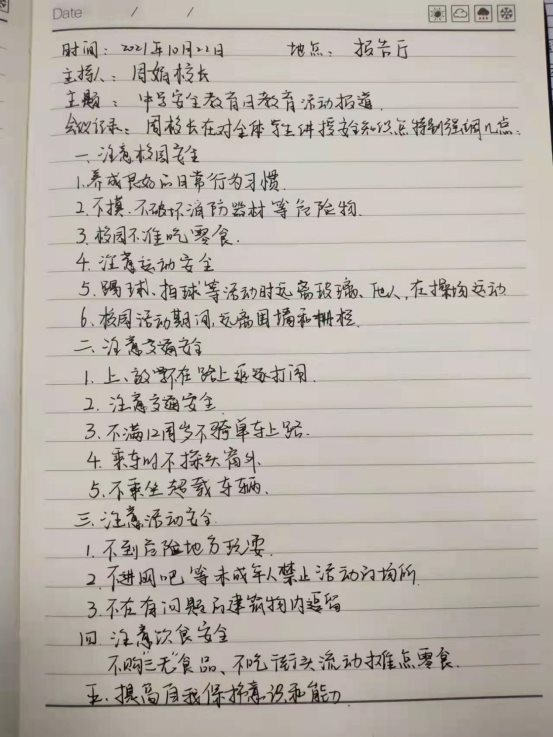 Date / /
时间: 2021年10月22日 地点: 报告厅
主持人: 周娟校长
主题: 中学安全教育日教育活动报道.
会议记录: 周校长在对全体学生讲授安全知识点特别强调几点:
一、注意校园安全
1.养成良好的日常行为习惯.
2.不摸、不破坏消防器材等危险物.
3.校园不准吃零食.
4.注意运动安全
5.踢球、拍球等活动时远离玻璃、他人,在操场运动
6.校园活动期间,远离围墙和栅栏.
二、注意交通安全
1.上、放学不在路上追逐打闹.
2.注意交通安全.
3.不满12周岁不骑单车上路.
4.乘车时不探头窗外.
5.不乘坐超载车辆.
三、注意活动安全.
1.不到危险地方玩耍.
2.不进网吧等未成年人禁止活动的场所.
3.不在有问题的建筑物内逗留
四、注意饮食安全
不购"三无"食品、不吃街头流动摊点零食.
五、提高自我保护意识和能力.